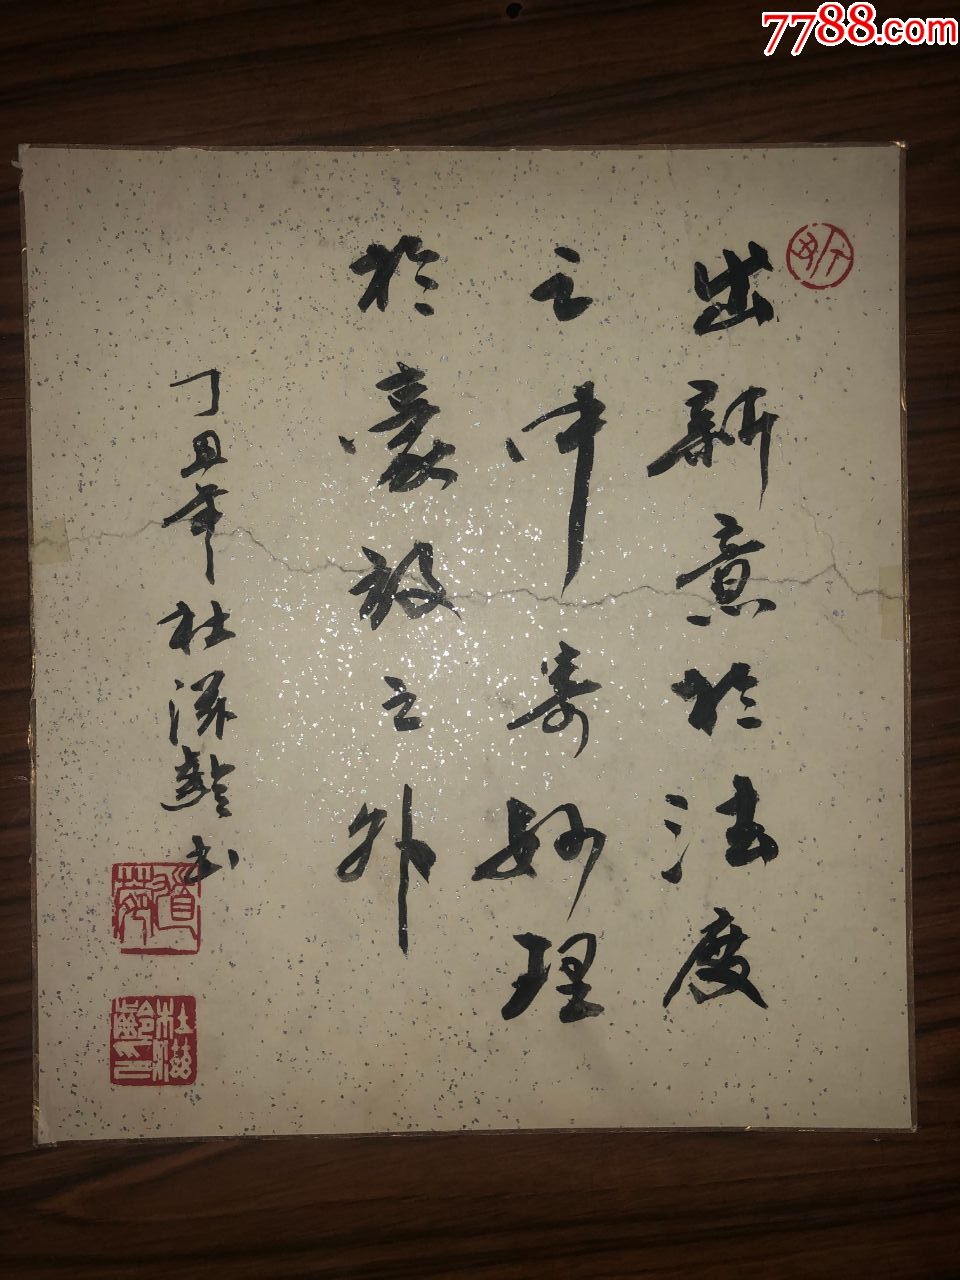 7788.com
出新意於法度
之中寄妙理
於豪放之外
丁丑年杜滋龄书
杜滋龄印